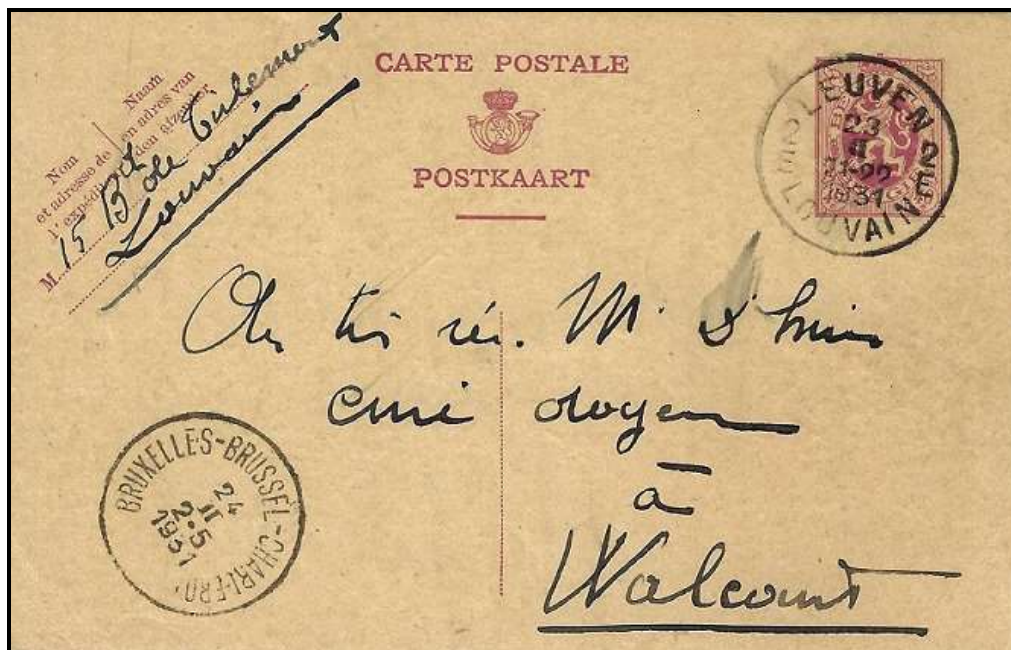 CARTE POSTALE
POSTKAART
Naam
en adres van
den afzender
Nom
et adresse de
l'expéditeur
M. 15 Bd de Tirlemont
Louvain
LEUVEN 2E
23
II
21-22
1931
LOUVAIN
Au très rév. M.
curé doyen
à
Walcourt
BRUXELLES-BRUSSEL-CHARLEROI
24
II
2-5
1931